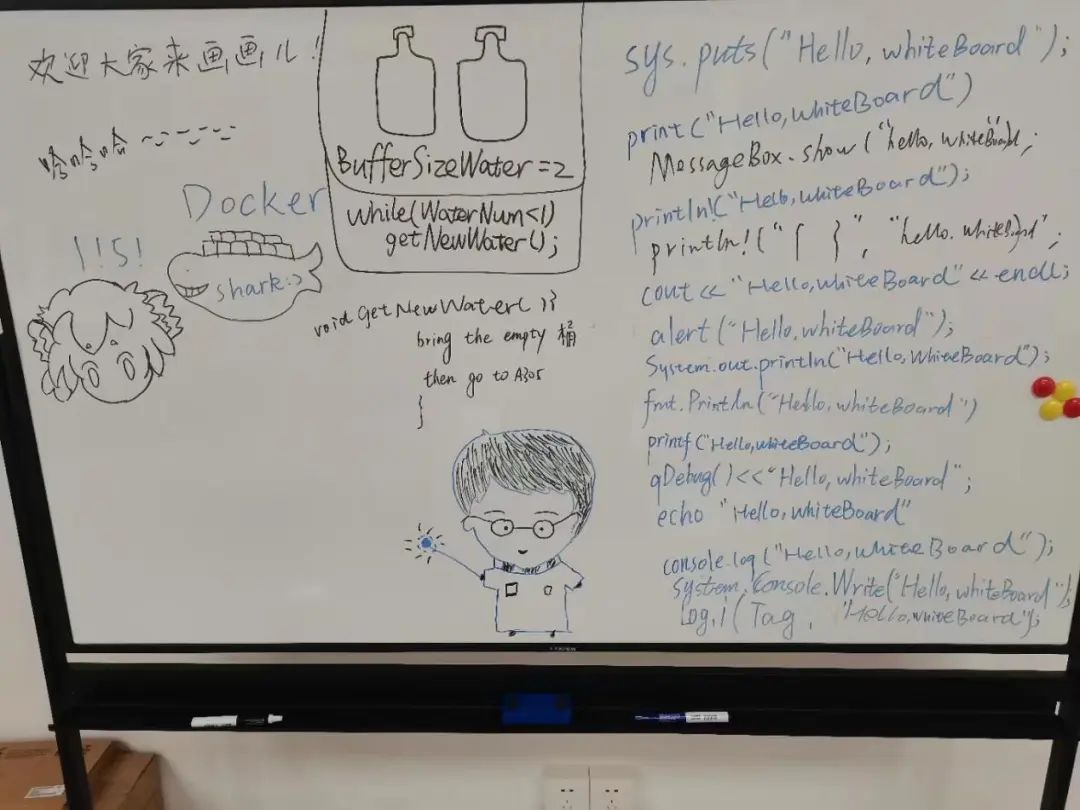 欢迎大家来画画儿！
哈哈哈~~~~~
Docker
shark:)
1!5!
BufferSizeWater=2
while(WaterNum<1)
getNewWater();
void getNewWater(){
bring the empty 桶
then go to A305
}
sys.puts("Hello, whiteBoard");
print("Hello,whiteBoard")
MessageBox.show("hello, whiteBoard");
println!("Hello,whiteBoard");
println!("{ }", "hello. whiteBoard";
cout << "Hello,whiteBoard" << endl;
alert("Hello,whiteBoard");
System.out.println("Hello, WhiteBoard");
fmt.Println("Hello, whiteBoard")
printf("Hello,whiteBoard");
qDebug()<<"Hello, whiteBoard";
echo "Hello, whiteBoard"
console.log("Hello,whiteBoard");
System.Console.Write("Hello, whiteBoard");
Log.i(Tag, "Hello,whiteBoard");